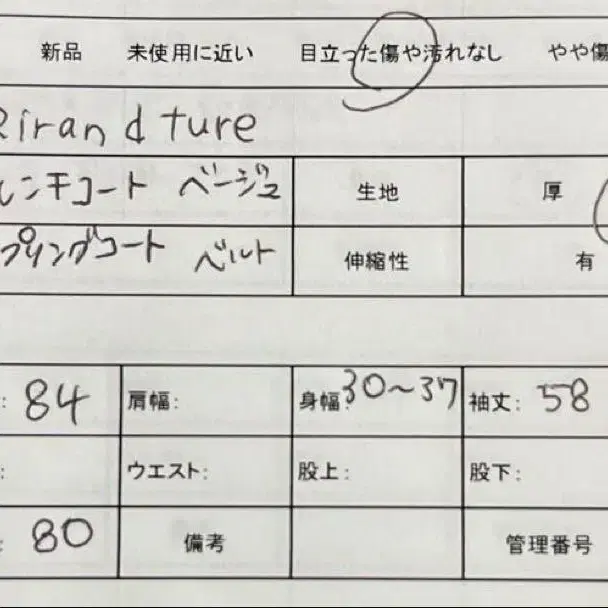 新品 未使用に近い 目立った傷や汚れなし やや傷
Rirandture
レンチコート ベージュ 生地 厚
プリングコート ベルト 伸縮性 有
: 84 肩幅: 身幅: 30〜37 袖丈: 58
: ウエスト: 股上: 股下:
: 80 備考 管理番号